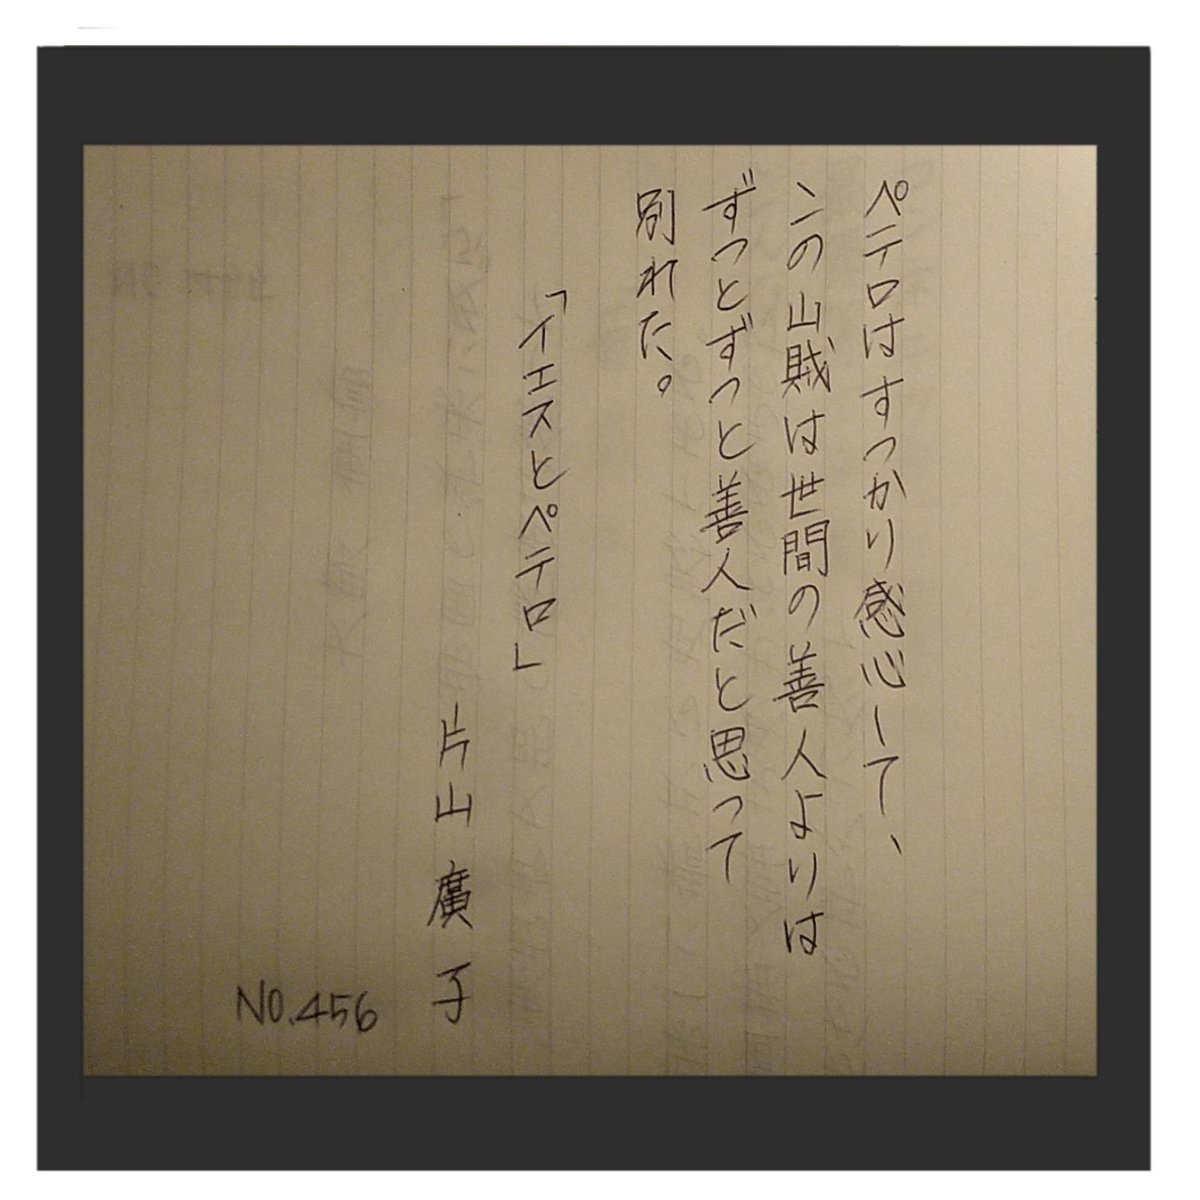 ペテロはすっかり感心して、
この山賊は世間の善人よりは
ずっとずっと善人だと思って
別れた。
「イエスとペテロ」
片山廣子
NO.456